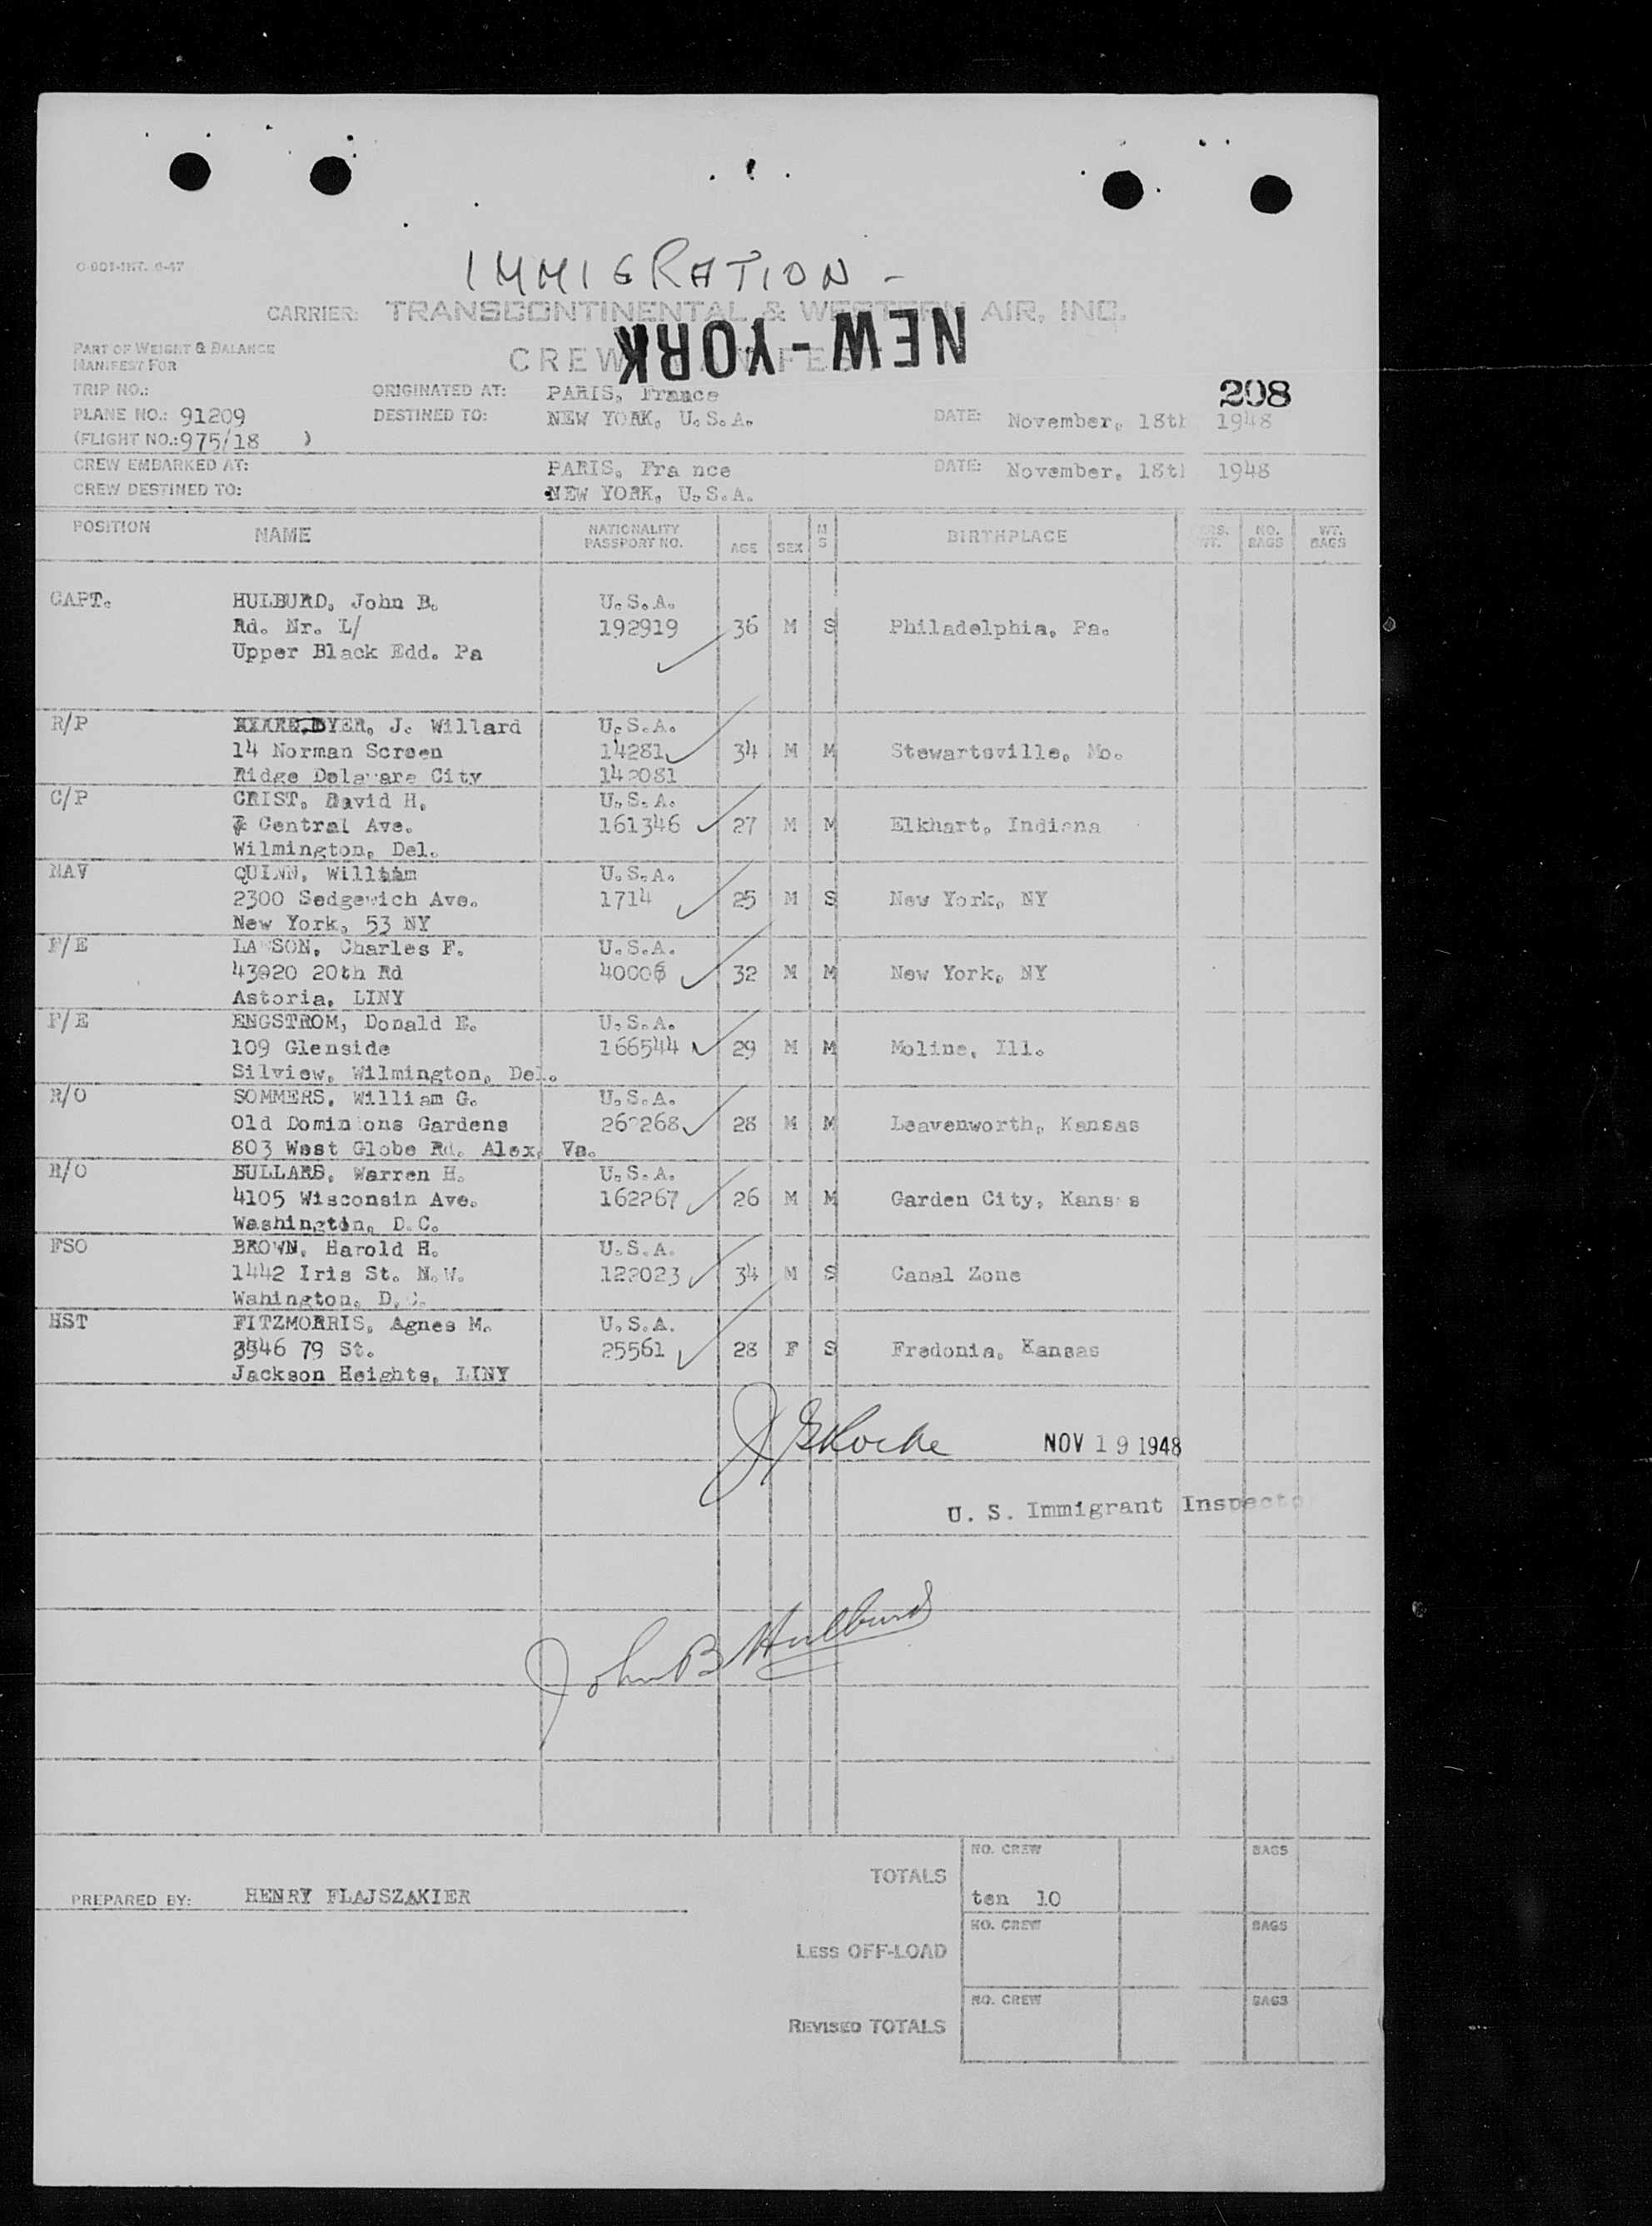 IMMIGRATION -
O-801-INT. 6-47
CARRIER: TRANSCONTINENTAL & WESTERN AIR, INC.
NEW-YORK
CREW MANIFEST
PART OF WEIGHT & BALANCE
MANIFEST FOR
208
TRIP NO.: ORIGINATED AT: PARIS, France
PLANE NO.: 91209 DESTINED TO: NEW YORK, U.S.A. DATE: November, 18th 1948
(FLIGHT NO.:975/18 )
CREW EMBARKED AT: PARIS, Fra nce DATE: November, 18th 1948
CREW DESTINED TO: NEW YORK, U.S.A.
POSITION NAME NATIONALITY PASSPORT NO. AGE SEX M S BIRTHPLACE NO. BAGS WT. BAGS
CAPT. HULBURD, John B. U.S.A.
Rd. Nr. L/ 192919 36 M S Philadelphia, Pa.
Upper Black Edd. Pa
R/P DYER, J. Willard U.S.A.
14 Norman Screen 14281 34 M M Stewartsville, Mo.
Ridge Delaware City 142081
C/P CRIST, David H. U.S.A.
Central Ave. 161346 27 M M Elkhart, Indiana
Wilmington, Del.
NAV QUINN, William U.S.A.
2300 Sedgewich Ave. 1714 25 M S New York, NY
New York, 53 NY
F/E LAWSON, Charles F. U.S.A.
43020 20th Rd 40006 32 M M New York, NY
Astoria, LINY
F/E ENGSTROM, Donald E. U.S.A.
109 Glenside 166544 29 M M Moline, Ill.
Silview, Wilmington, Del.
R/O SOMMERS, William G. U.S.A.
Old Dominions Gardens 262268 28 M M Leavenworth, Kansas
803 West Globe Rd. Alex, Va.
R/O BULLARD, Warren H. U.S.A.
4105 Wisconsin Ave. 162267 26 M M Garden City, Kansas
Washington, D.C.
FSO BROWN, Harold H. U.S.A.
1442 Iris St. N.W. 122023 34 M S Canal Zone
Wahington, D.C.
HST FITZMORRIS, Agnes M. U.S.A.
3546 79 St. 25561 28 F S Fredonia, Kansas
Jackson Heights, LINY
NOV 19 1948
U. S. Immigrant Inspector
John B Hulburd
NO. CREW BAGS
TOTALS
PREPARED BY: HENRY FLAJSZAKIER ten 10
NO. CREW BAGS
LESS OFF-LOAD
NO. CREW BAGS
REVISED TOTALS